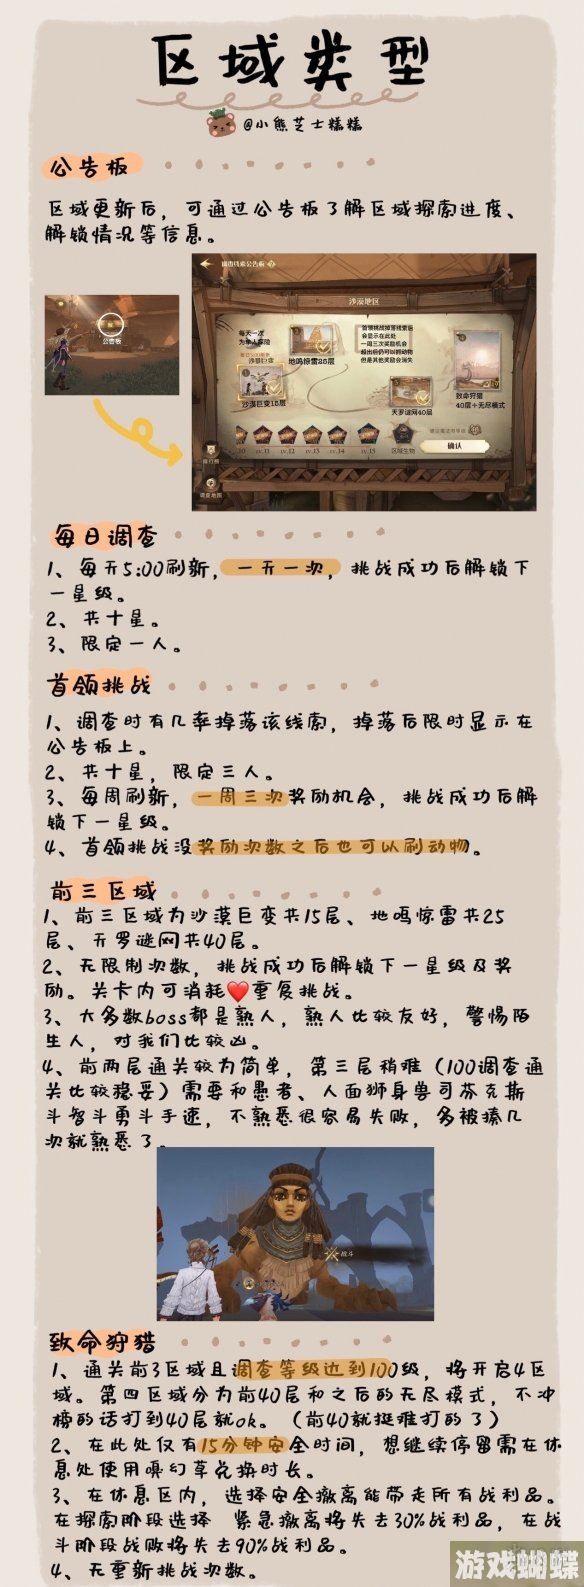 区域类型
@小熊芝士糕糕
公告板
区域更新后，可通过公告板了解区域探索进度、
解锁情况等信息。
调查线索公告板
沙漠地区
公告板
每天一次
为单人探险
地鸣惊雷25层
首领挑战掉落线索后
会显示在此处
一周三次奖励机会
超出后仍可以抓动物
但是其他奖励会消失
沙漠巨变15层
天罗谜网40层
致命狩猎
40层+无尽模式
LV.11
LV.12
LV.13
LV.14
LV.15
区域生物
确认
排行榜
调查地图
每日调查
1、每天5:00刷新，一天一次，挑战成功后解锁下
一星级。
2、共十星。
3、限定一人。
首领挑战
1、调查时有几率掉落该线索，掉落后限时显示在
公告板上。
2、共十星，限定三人。
3、每周刷新，一周三次奖励机会，挑战成功后解
锁下一星级。
4、首领挑战没奖励次数之后也可以刷动物。
前三区域
1、前三区域为沙漠巨变共15层、地鸣惊雷共25
层、天罗谜网共40层。
2、无限制次数，挑战成功后解锁下一星级及奖
励。关卡内可消耗❤️重复挑战。
3、大多数boss都是熟人，熟人比较友好，警惕陌
生人，对我们比较凶。
4、前两层通关较为简单，第三层稍难（100调查通
关比较稳妥）需要和愚者、人面狮身兽司芬克斯
斗智斗勇斗手速，不熟悉很容易失败，多被揍几
次就熟悉了。
战斗
致命狩猎
1、通关前3区域且调查等级达到100级，将开启4区
域。第四区域分为前40层和之后的无尽模式，不冲
榜的话打到40层就ok。（前40就挺难打的了）
2、在此处仅有15分钟安全时间，想继续停留需在休
息处使用嗅幻草兑换时长。
3、在休息区内，选择安全撤离能带走所有战利品。
在探索阶段选择 紧急撤离将失去30%战利品，在战
斗阶段战败将失去90%战利品。
4、无重新挑战次数。
游戏蝴蝶